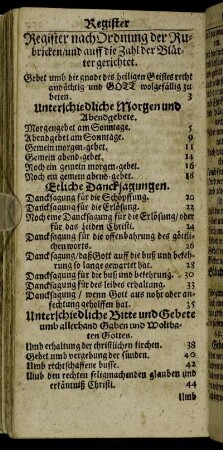 Register
Register nach Ordnung der Ru-
bricken/und auff die Zahl der Blät-
ter gerichtet.
Gebet umb die gnade des heiligen Geistes recht
andächtig und GOTT wolgefällig zu
beten. 3
Unterschiedliche Morgen und
Abendgebete.
Morgengebet am Sonntage. 5
Abendgebet am Sonntage. 9
Gemein morgen-gebet. 11
Gemein abend-gebet. 14
Noch ein gemein morgen-gebet. 16
Noch ein gemein abend-gebet. 18
Etliche Dancksagungen.
Dancksagung für die Schöpffung. 20
Dancksagung für die Erlösung. 22
Noch eine Dancksagung für die Erlösung/oder
für das Leiden Christi. 24
Dancksagung für die offenbahrung des göttli-
chen worts. 26
Dancksagung/daß Gott auff die buß und bekeh-
rung so lange gewartet hat. 28
Dancksagung für die buß und bekehrung. 30
Dancksagung für des leibes erhaltung. 33
Dancksagung / wenn Gott aus noht oder an-
fechtung geholffen hat. 35
Unterschiedliche Bitte und Gebete
umb allerhand Gaben und Woltha-
ten Gottes.
Umb erhaltung der christlichen kirchen. 38
Gebet umb vergebung der sünden. 40
Umb rechtschaffene busse. 42
Umb den rechten seligmachenden glauben und
erkäntnüß Christi. 44
Umb